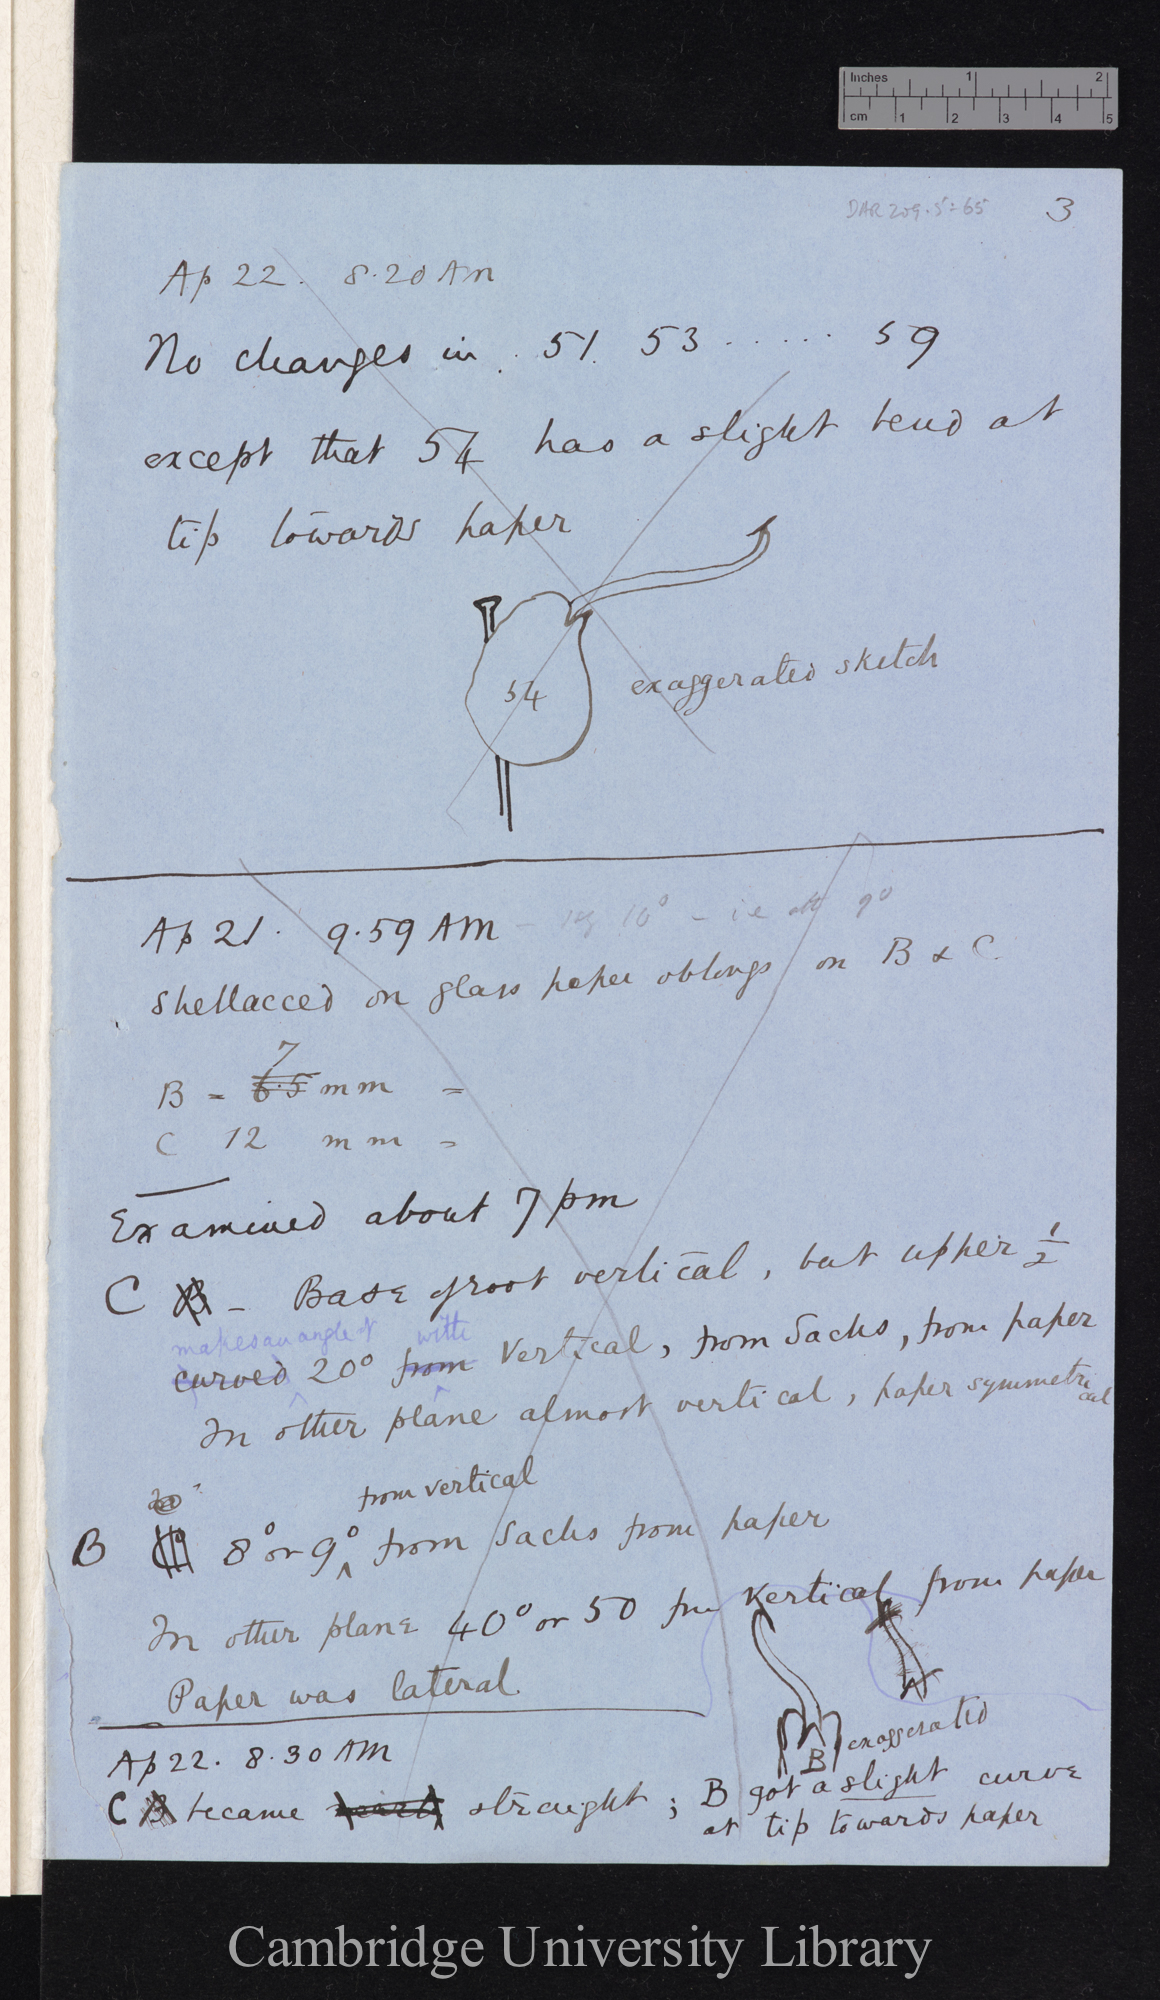 Inches 1 2
cm 1 2 3 4 5
DAR 209.5:65 3
Ap 22. 8.20 AM
No changes in 51. 53 ...... 59
except that 54 has a slight bend at
tip towards paper
54
exaggerated sketch
Ap 21. 9.59 AM 10° - i.e. 90
Shellacced on glass paper oblongs on B & C.
7
B = 6.5 mm =
C 12 mm =
Examined about 7 pm
C B - Base of root vertical, but upper 1/2
makes an angle of with
curved 20° from vertical, from Sachs, from paper
In other plane almost vertical, paper symmetrical
from vertical
B 8° or 9° from Sachs from paper
In other plane 40° or 50 fm vertical from paper
Paper was lateral
B exaggerated
Ap 22. 8.30 AM
C B became straight ; B got a slight curve
at tip towards paper
Cambridge University Library